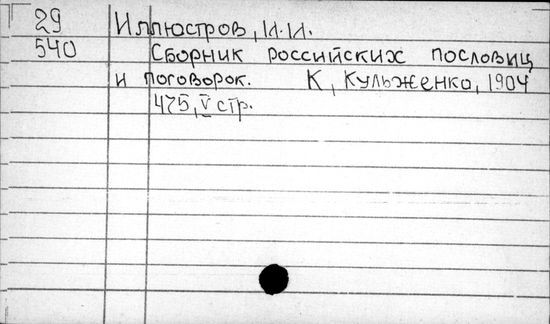 29 Иллюстров, И.И.
540 Сборник российских пословиц
и поговорок. К, Кульженко, 1904
475, V стр.